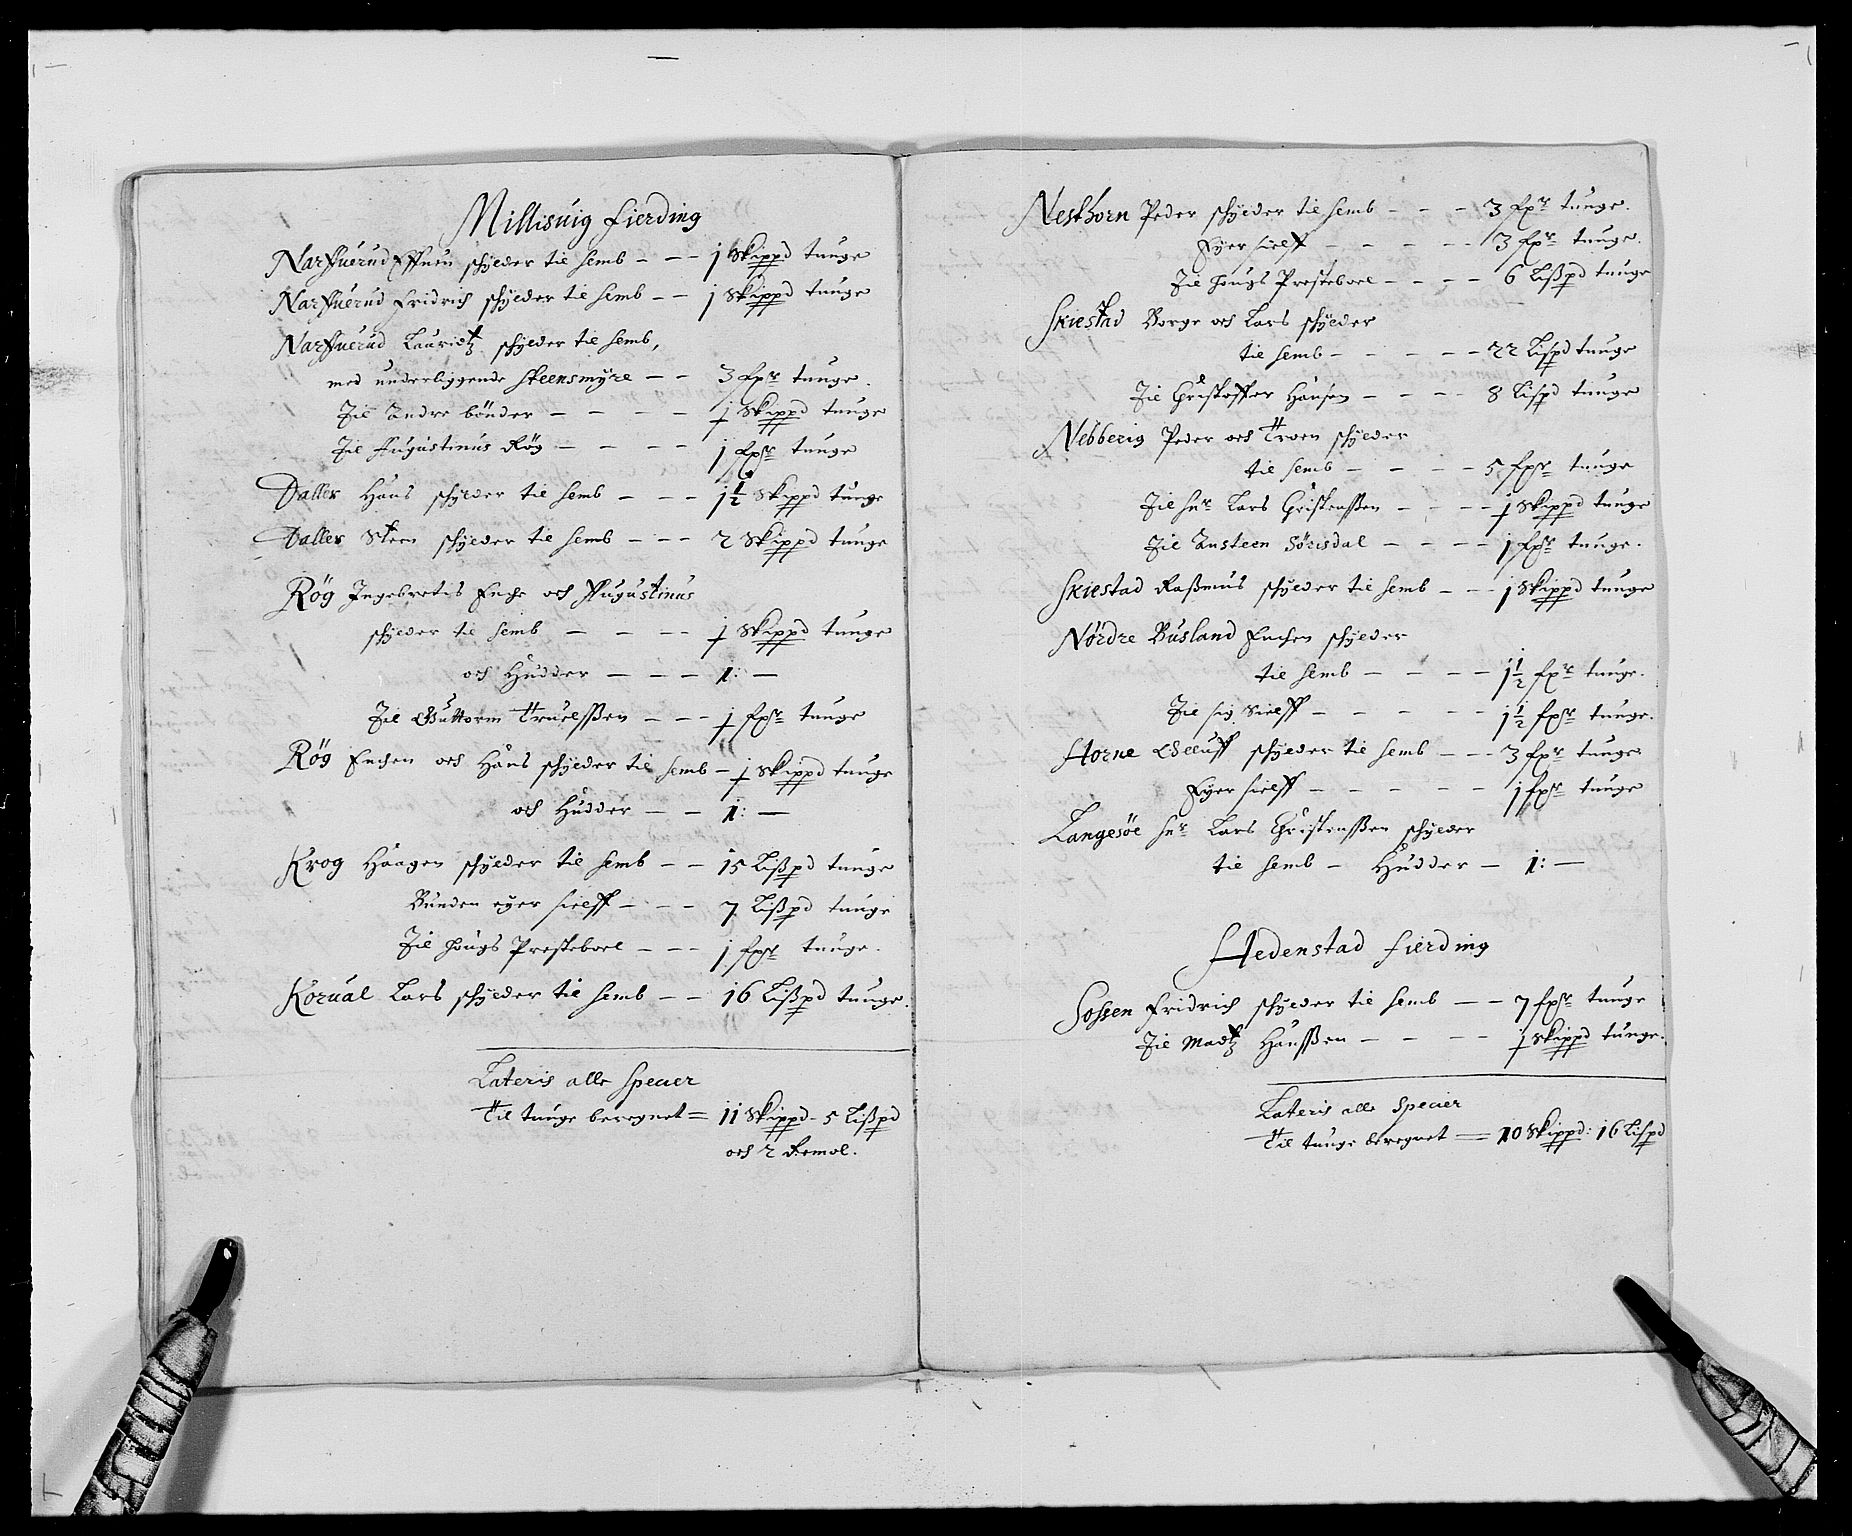 Millisuig Fierding
Narffuerud Effuen schylder til Semb - - - 1 Skippd tunge
Narffuerud Fridrich schylder til Semb - - 1 Skippd tunge
Narffuerud Lauridtz schylder til Semb,
med underliggende Steensmyre - - 3 fpr tunge.
Til Andre bönder - - - - 1 Skippd tunge
Til Augustinus Røg - - - - 1 fpr tunge
Daller Hans schylder til Semb - - - 1½ Skippd tunge
Daller Steen schylder til Semb - - - 2 Skippd tunge
Rög Ingebretis Enche och Augustinus
schylder til Semb - - - - 1 Skippd tunge
och Hudder - - - 1: -
Til Guttorm Truelssen - - - 1 fpr tunge
Rög Enchen och Hans schylder til Semb - 1 Skippd tunge
och Hudder - - 1: -
Krog Haagen schylder til Semb - - 15 Lißpd tunge
Bunden eyer sielff - - - 7 Lißpd tunge
Til Hougs Presteboel - - - 1 fpr tunge.
Korual Lars schylder til Semb - - 16 Lißpd tunge.
Lateris alle Specier
Til tunge beregnet = 11 Skippd - 5 Lißpd
och 2 Remol.
Nesthorn Peder schylder til Semb - - - 3 fpr tunge.
Eyer sielff - - - - - 3 fpr tunge.
Til Hougs Presteboel - - - - 6 Lißpd tunge
Skiestad Borge och Lars schylder
til Semb - - - - - 22 Lispd tunge
Til Christoffer Hansen - - - - 8 Lispd tunge
Nebberig Peder och Troen schylder
til Semb - - - - 5 fpr tunge
Til Hr Lars Christenssen - - - - 1 Skippd tunge
Til Ansteen Sörisdal - - - - 1 fpr tunge.
Skiestad Raßmus schylder til Semb - - - 1 Skippd tunge
Nördre Busland Enchen schylder
til Semb - - - - 1½ fpr tunge.
Til sig Sielff - - - - - 1½ fpr tunge.
Horne Oelluff schylder til Semb - - - 3 fpr tunge
Eyer sielff - - - - - 1 fpr tunge
Langesöe Hr Lars Christenssen schylder
til Semb - Hudder - 1: -
Hedenstad Fierding
Sossen Fridrich schylder til Semb - - 7 fpr tunge
Til Madtz Hanssen - - - - 1 Skippd tunge.
Lateris alle Specier
Til tunge beregnet = 10 Skippd: 16 Lispd